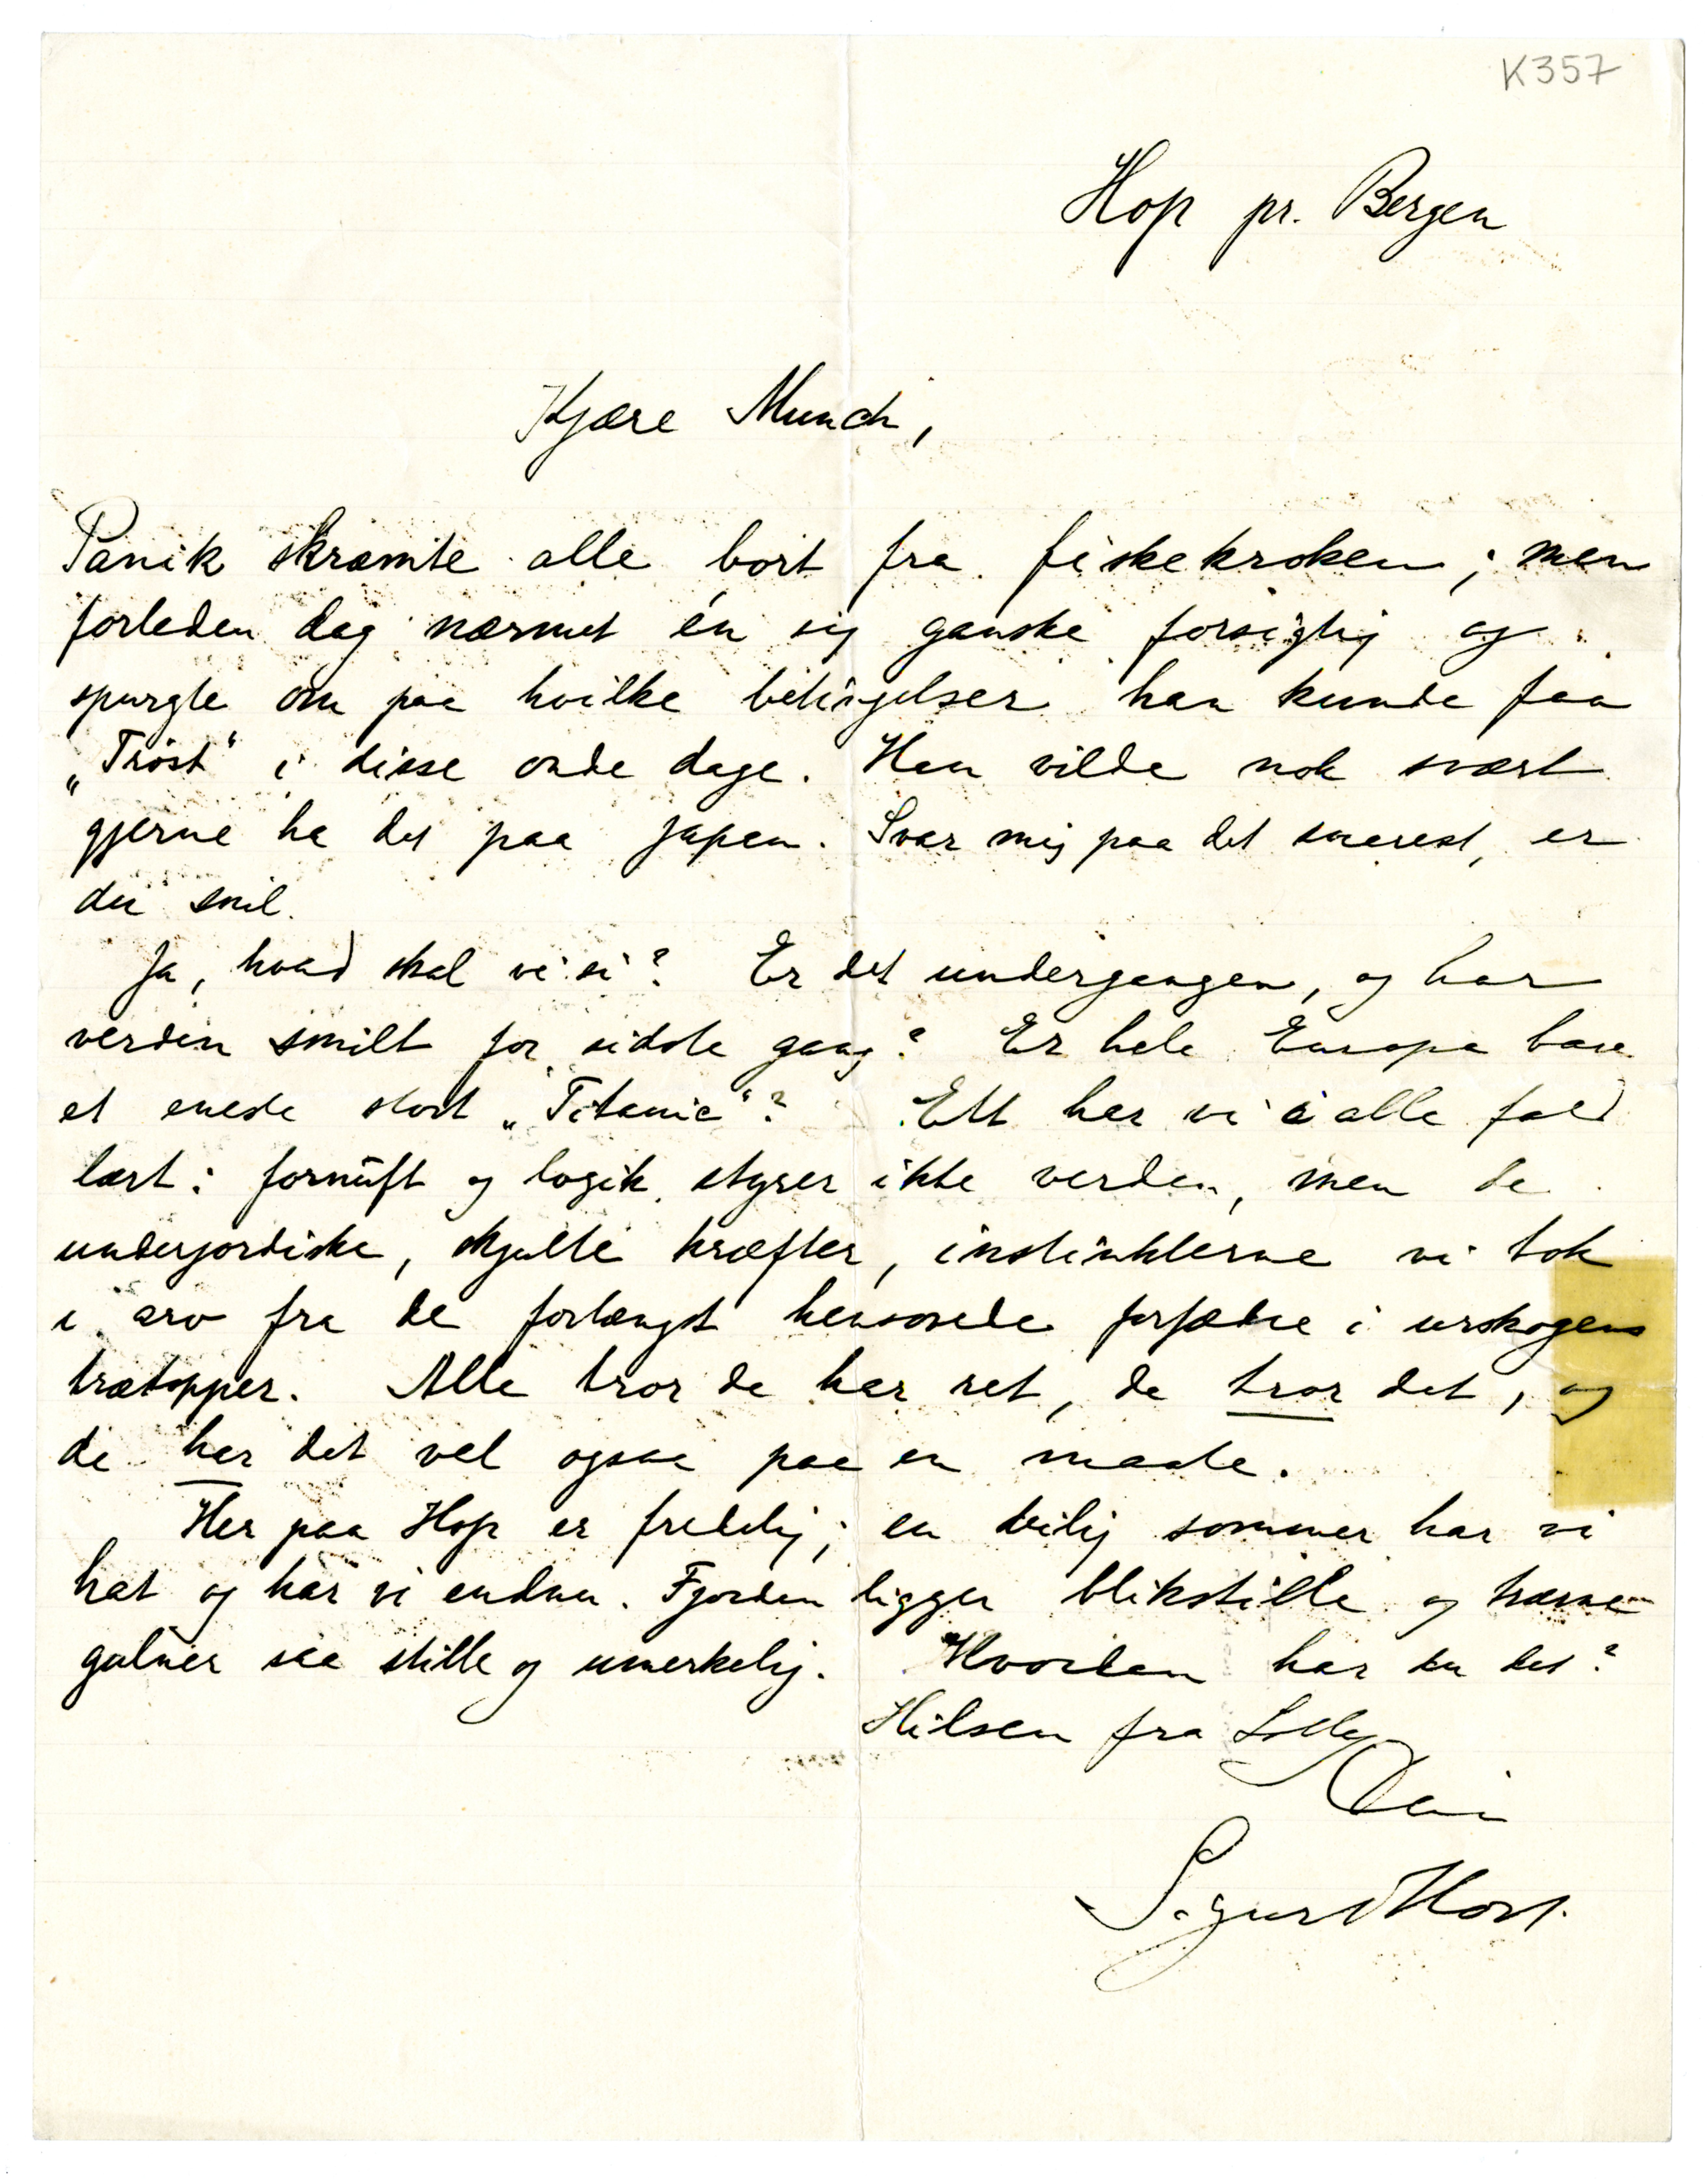 K357
Hop pr. Bergen
Kjære Munch,
Panik skræmte alle bort fra fiskekroken; men
forleden dag nærmet én sig ganske forsigtig og
spurgte om paa hvilke betingelser han kunde faa
„Trøst“ i disse onde dage. Han vilde nok svært
gjerne ha det paa Japan. Svar mig paa det snarest, er
du snil.
Ja, hvad skal vi si? Er det undergangen, og har
verden smilt for sidste gang? Er hele Europa bare
et eneste stort „Titanic“? Ett har vi i alle fald
lært: fornuft og logik styrer ikke verden, men de
underjordiske, skjulte kræfter, instinkterne vi tok
i arv fra de forlængst hensovede forfædre i urskogens
trætopper. Alle tror de har ret, de tror det, og
de har det vel ogsaa paa en maate.
Her paa Hop er fredelig; en deilig sommer har vi
hat og har vi endnu. Fjorden ligger blikstille og trærne
gulner saa stille og umerkelig. Hvordan har du det?
Hilsen fra Lolly
Din
Sigurd Høst.